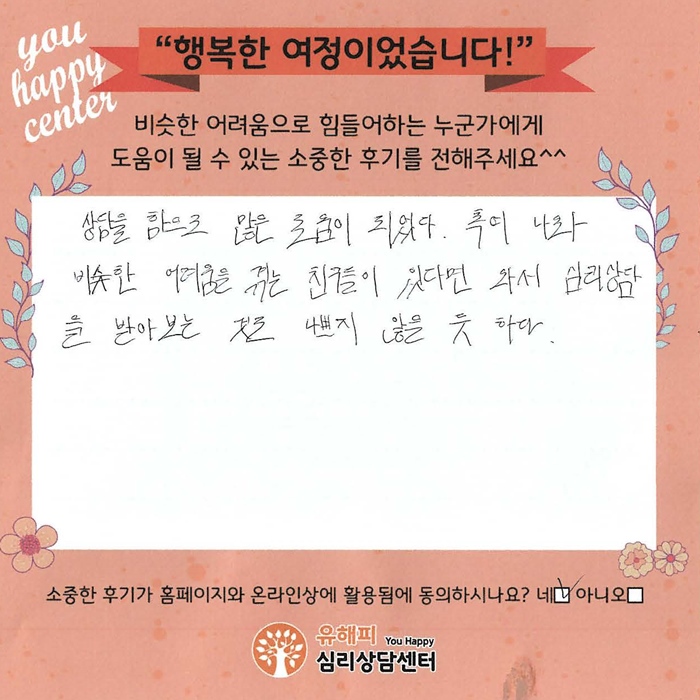 you
happy
center
“행복한 여정이었습니다!”
비슷한 어려움으로 힘들어하는 누군가에게
도움이 될 수 있는 소중한 후기를 전해주세요^^
상담을 함으로 많은 도움이 되었다. 혹여 나와
비슷한 어려움을 겪는 친구들이 있다면 와서 심리상담
을 받아보는 것도 나쁘지 않을 듯 하다.
소중한 후기가 홈페이지와 온라인상에 활용됨에 동의하시나요? 네☑아니오☐
유해피 You Happy
심리상담센터